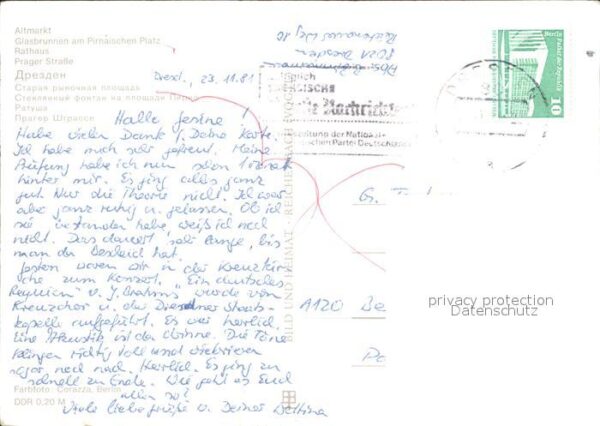 Altmarkt
Glasbrunnen am Pirnaischen Platz
Rathaus
Prager Straße
Дрезден
Старая рыночная площадь
Стеклянный фонтан на площади
Ратуша
Прагер Штрассе
Dresd., 23.11.81
Habe vielen Dank f. Deine Karte.
Ich habe mich sehr gefreut. Meine
Prüfung habe ich nun schon 1 Monat
hinter mir. Es ging alles ganz
gut. Nur die Theorie nicht. Ich war
aber ganz ruhig u. gelassen. Ob ich
sie bestanden habe, weiß ich noch
nicht. Das dauert sehr lange, bis
man den Bescheid hat.
Gestern waren wir in der Kreuzkir-
che zum Konzert. "Ein deutsches
Requiem" v. J. Brahms wurde vom
Kreuzchor u. der Dresdner Staats-
kapelle aufgeführt. Es war herrlich.
Eine Akustik ist da drinne. Die Töne
klingen richtig voll und vibrieren
sogar noch nach. Herrlich. Es ging zu
schnell zu Ende. Wie geht es Euch
allen so?
Viele liebe Grüße v. Deiner Bettina
Farbfoto: Corazza, Berlin
DDR 0,20 M
BILD UND HEIMAT · REICHENBACH
8021 Dresden
SÄCHSISCHE
Nachrichten
Zeitung der National-
Partei Deutschlands
Berlin
10
G.
1120 Be
privacy protection
Datenschutz